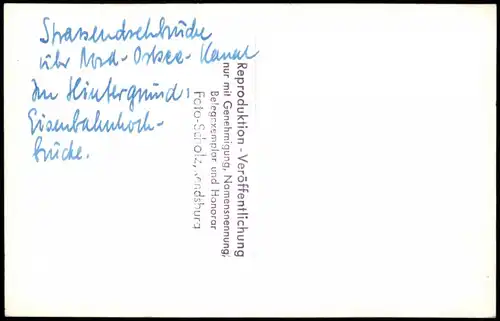 Strassendrehbrücke
über Nord-Ostsee-Kanal
Im Hintergrund:
Eisenbahnhoch-
brücke.
Reproduktion - Veröffentlichung
nur mit Genehmigung, Namensnennung,
Belegexemplar und Honorar
Foto-